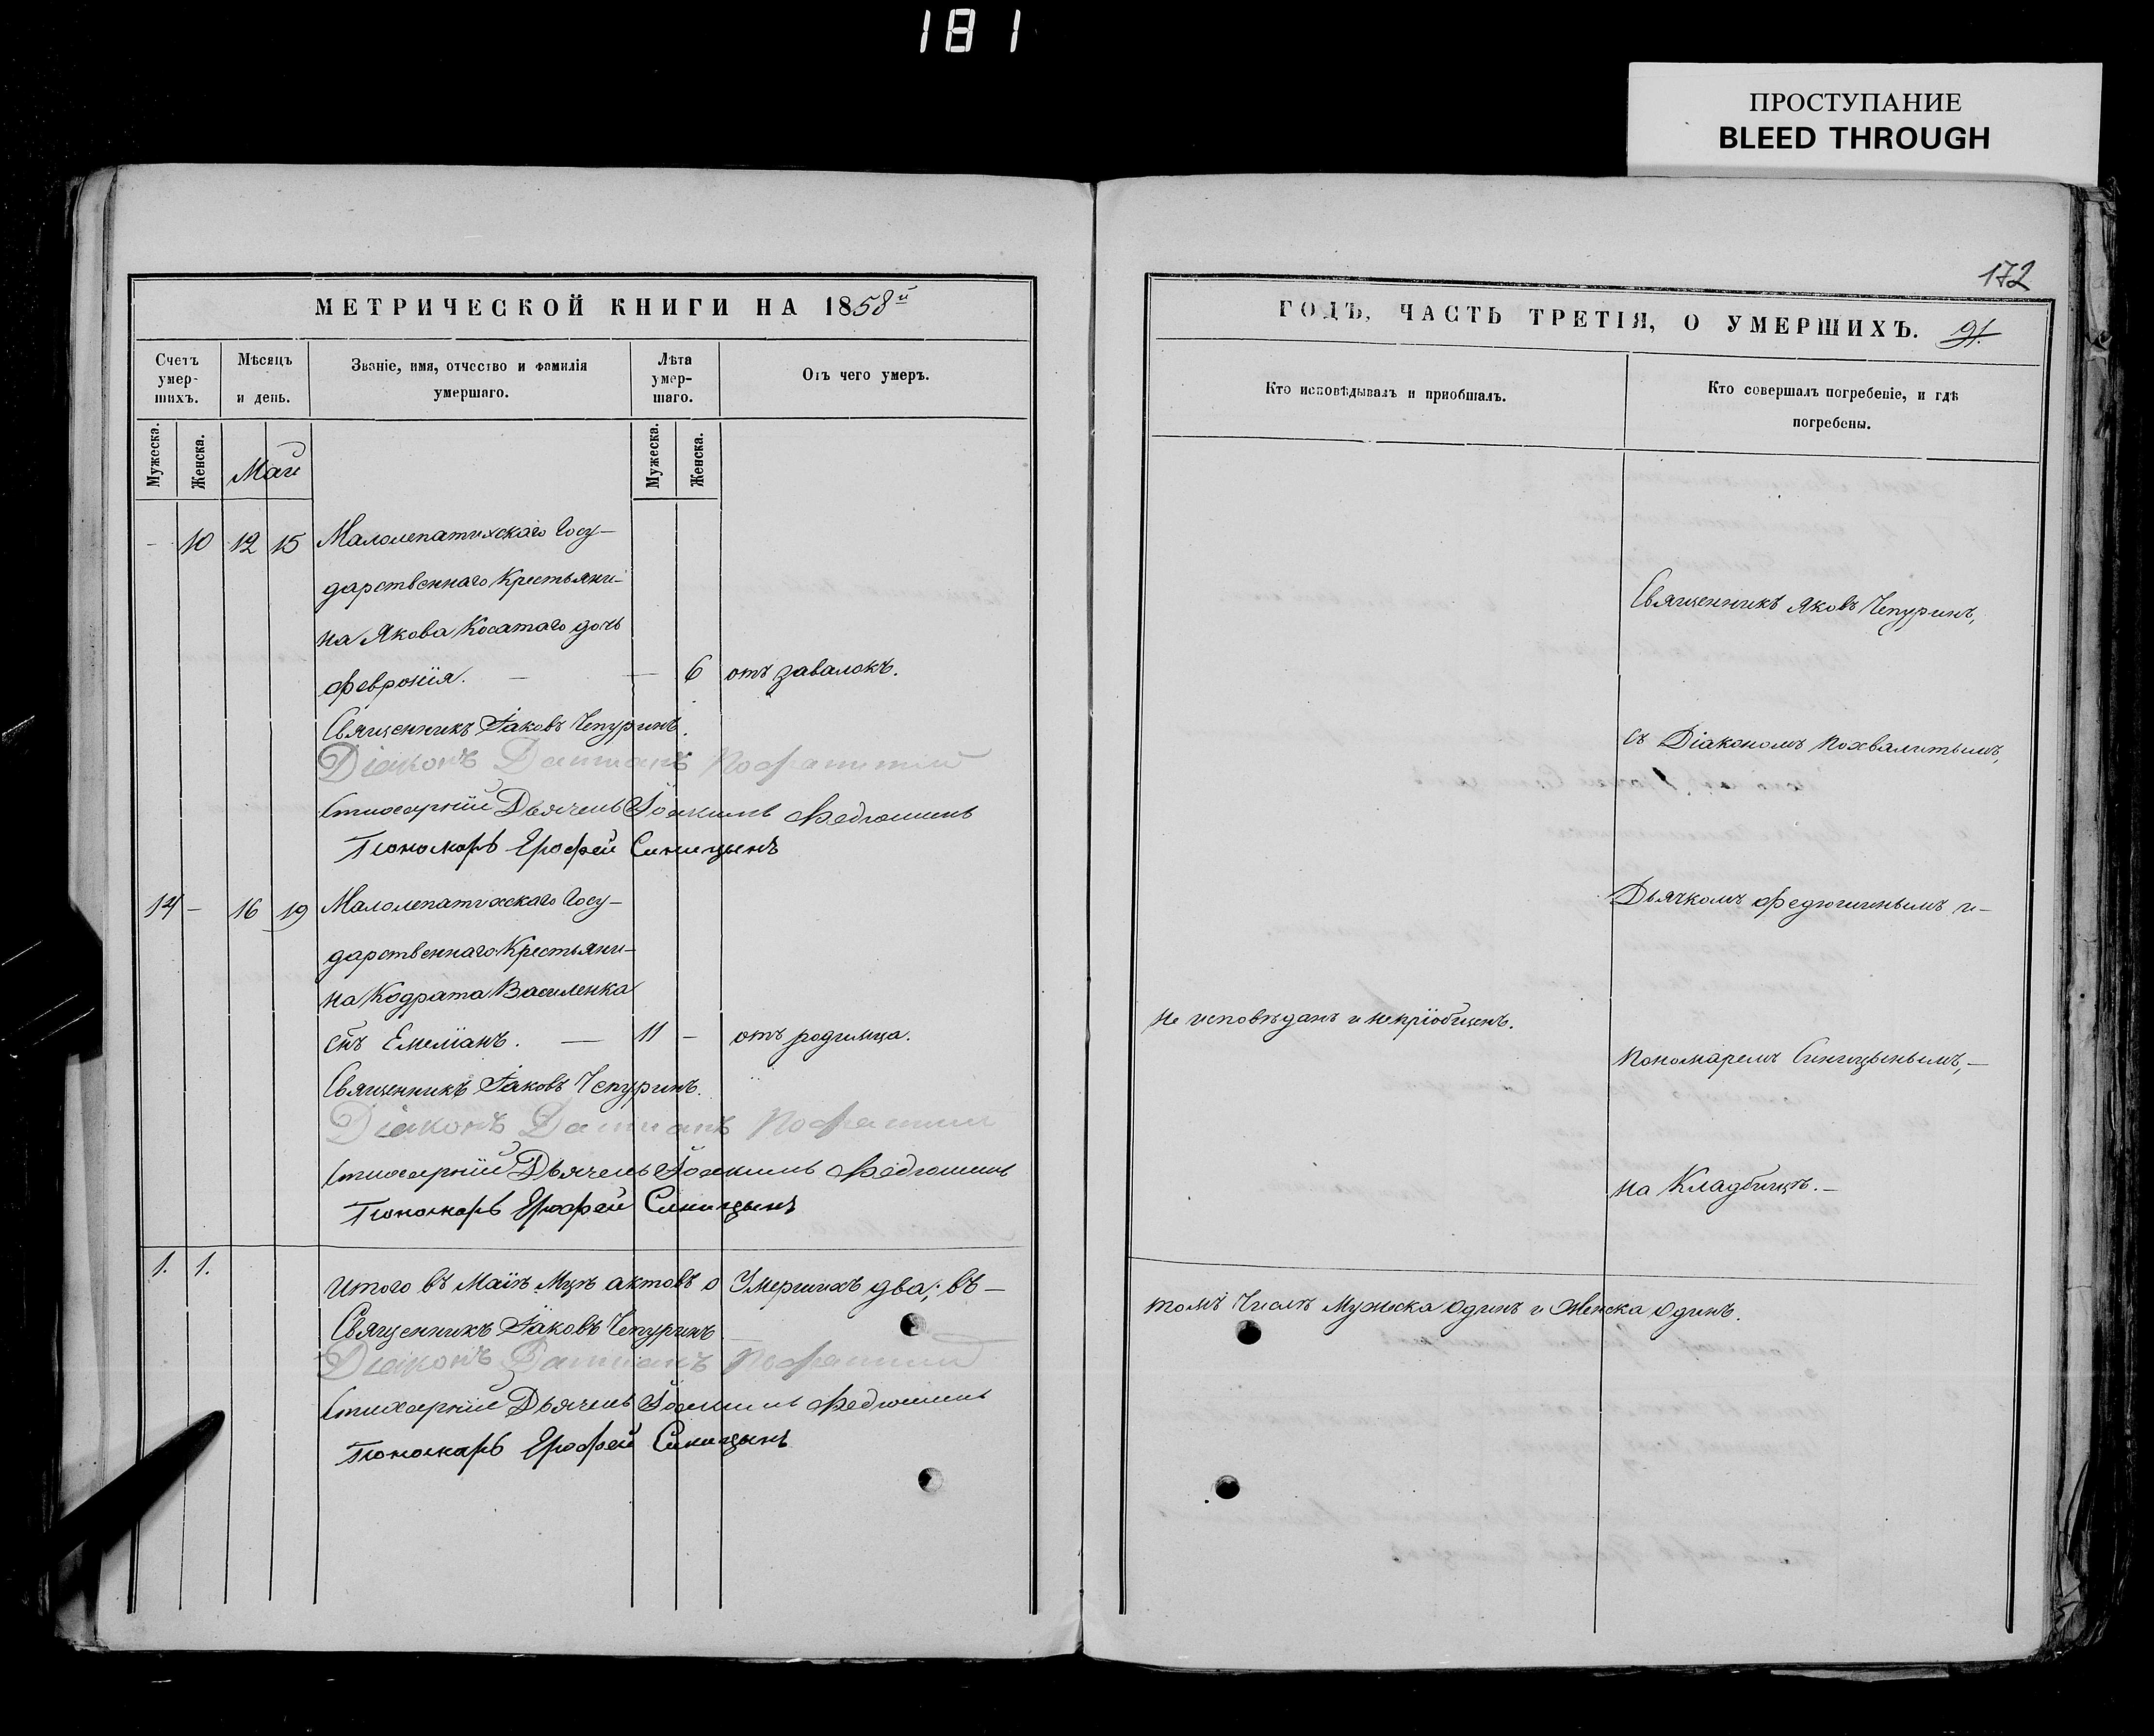 181
ПРОСТУПАНИЕ
BLEED THROUGH
МЕТРИЧЕСКОЙ КНИГИ НА 1858й
Счетъ умер-шихъ.
Мѣсяцъ и день.
Званіе, имя, отчество и фамилія умершаго.
Лѣта умер-шаго.
Отъ чего умеръ.
Мужеска.
Женска.
Маи
Мужеска.
Женска.
- 10 12 15 Малолепатихскаго Госу-
дарственнаго Крестьяни-
на Якова Косатаго дочь
Феврония. — — 6 отъ завалокъ.
Священникъ Іаковъ Чепуринъ.
Діаконъ Даміанъ
Стихарный Дьячекъ Іоакимъ Федюшинъ
Пономарь Ерофей Синицынъ
14 - 16 19 Малолепатихскаго Госу-
дарственнаго Крестьяни-
на Кодрата Василенка
снъ Емеліанъ. — 11 - отъ родимца.
Священникъ Іаковъ Чепуринъ.
Діаконъ Даміанъ
Стихарный Дьячекъ Іоакимъ Федюшинъ
Пономарь Ерофей Синицынъ
1. 1.
Итого въ Маіѣ Мцѣ актовъ о Умершихъ два; въ —
Священникъ Іаковъ Чепуринъ
Діаконъ Даміанъ
Стихарный Дьячекъ Іоакимъ Федюшинъ
Пономарь Ерофей Синицынъ
172
ГОДЪ, ЧАСТЬ ТРЕТІЯ, О УМЕРШИХЪ. 91.
Кто исповѣдывалъ и приобщалъ.
Кто совершалъ погребеніе, и гдѣ
погребены.
Священникъ Яковъ Чепуринъ,
съ Діакономъ Похвалитымъ,
Дьячкомъ Федюшинымъ и —
не исповѣданъ и непріобщенъ.
Пономаремъ Синицынымъ, —
на Кладбищѣ. —
томъ Числѣ Мужеска Одинъ и Женска Одинъ.